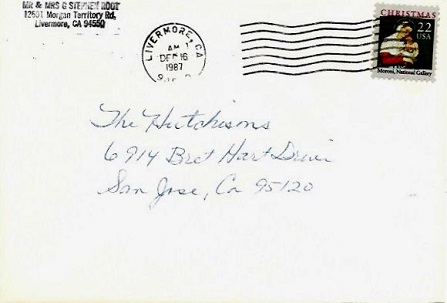 MR & MRS G STEPHEN ROOT
12601 Morgan Territory Rd,
Livermore, CA 94550
LIVERMORE, CA
AM
DEC 16
1987
CHRISTMAS
22
USA
Moroni, National Gallery
The Hutchisons
6914 Bret Hart Drive
San Jose, Ca 95120